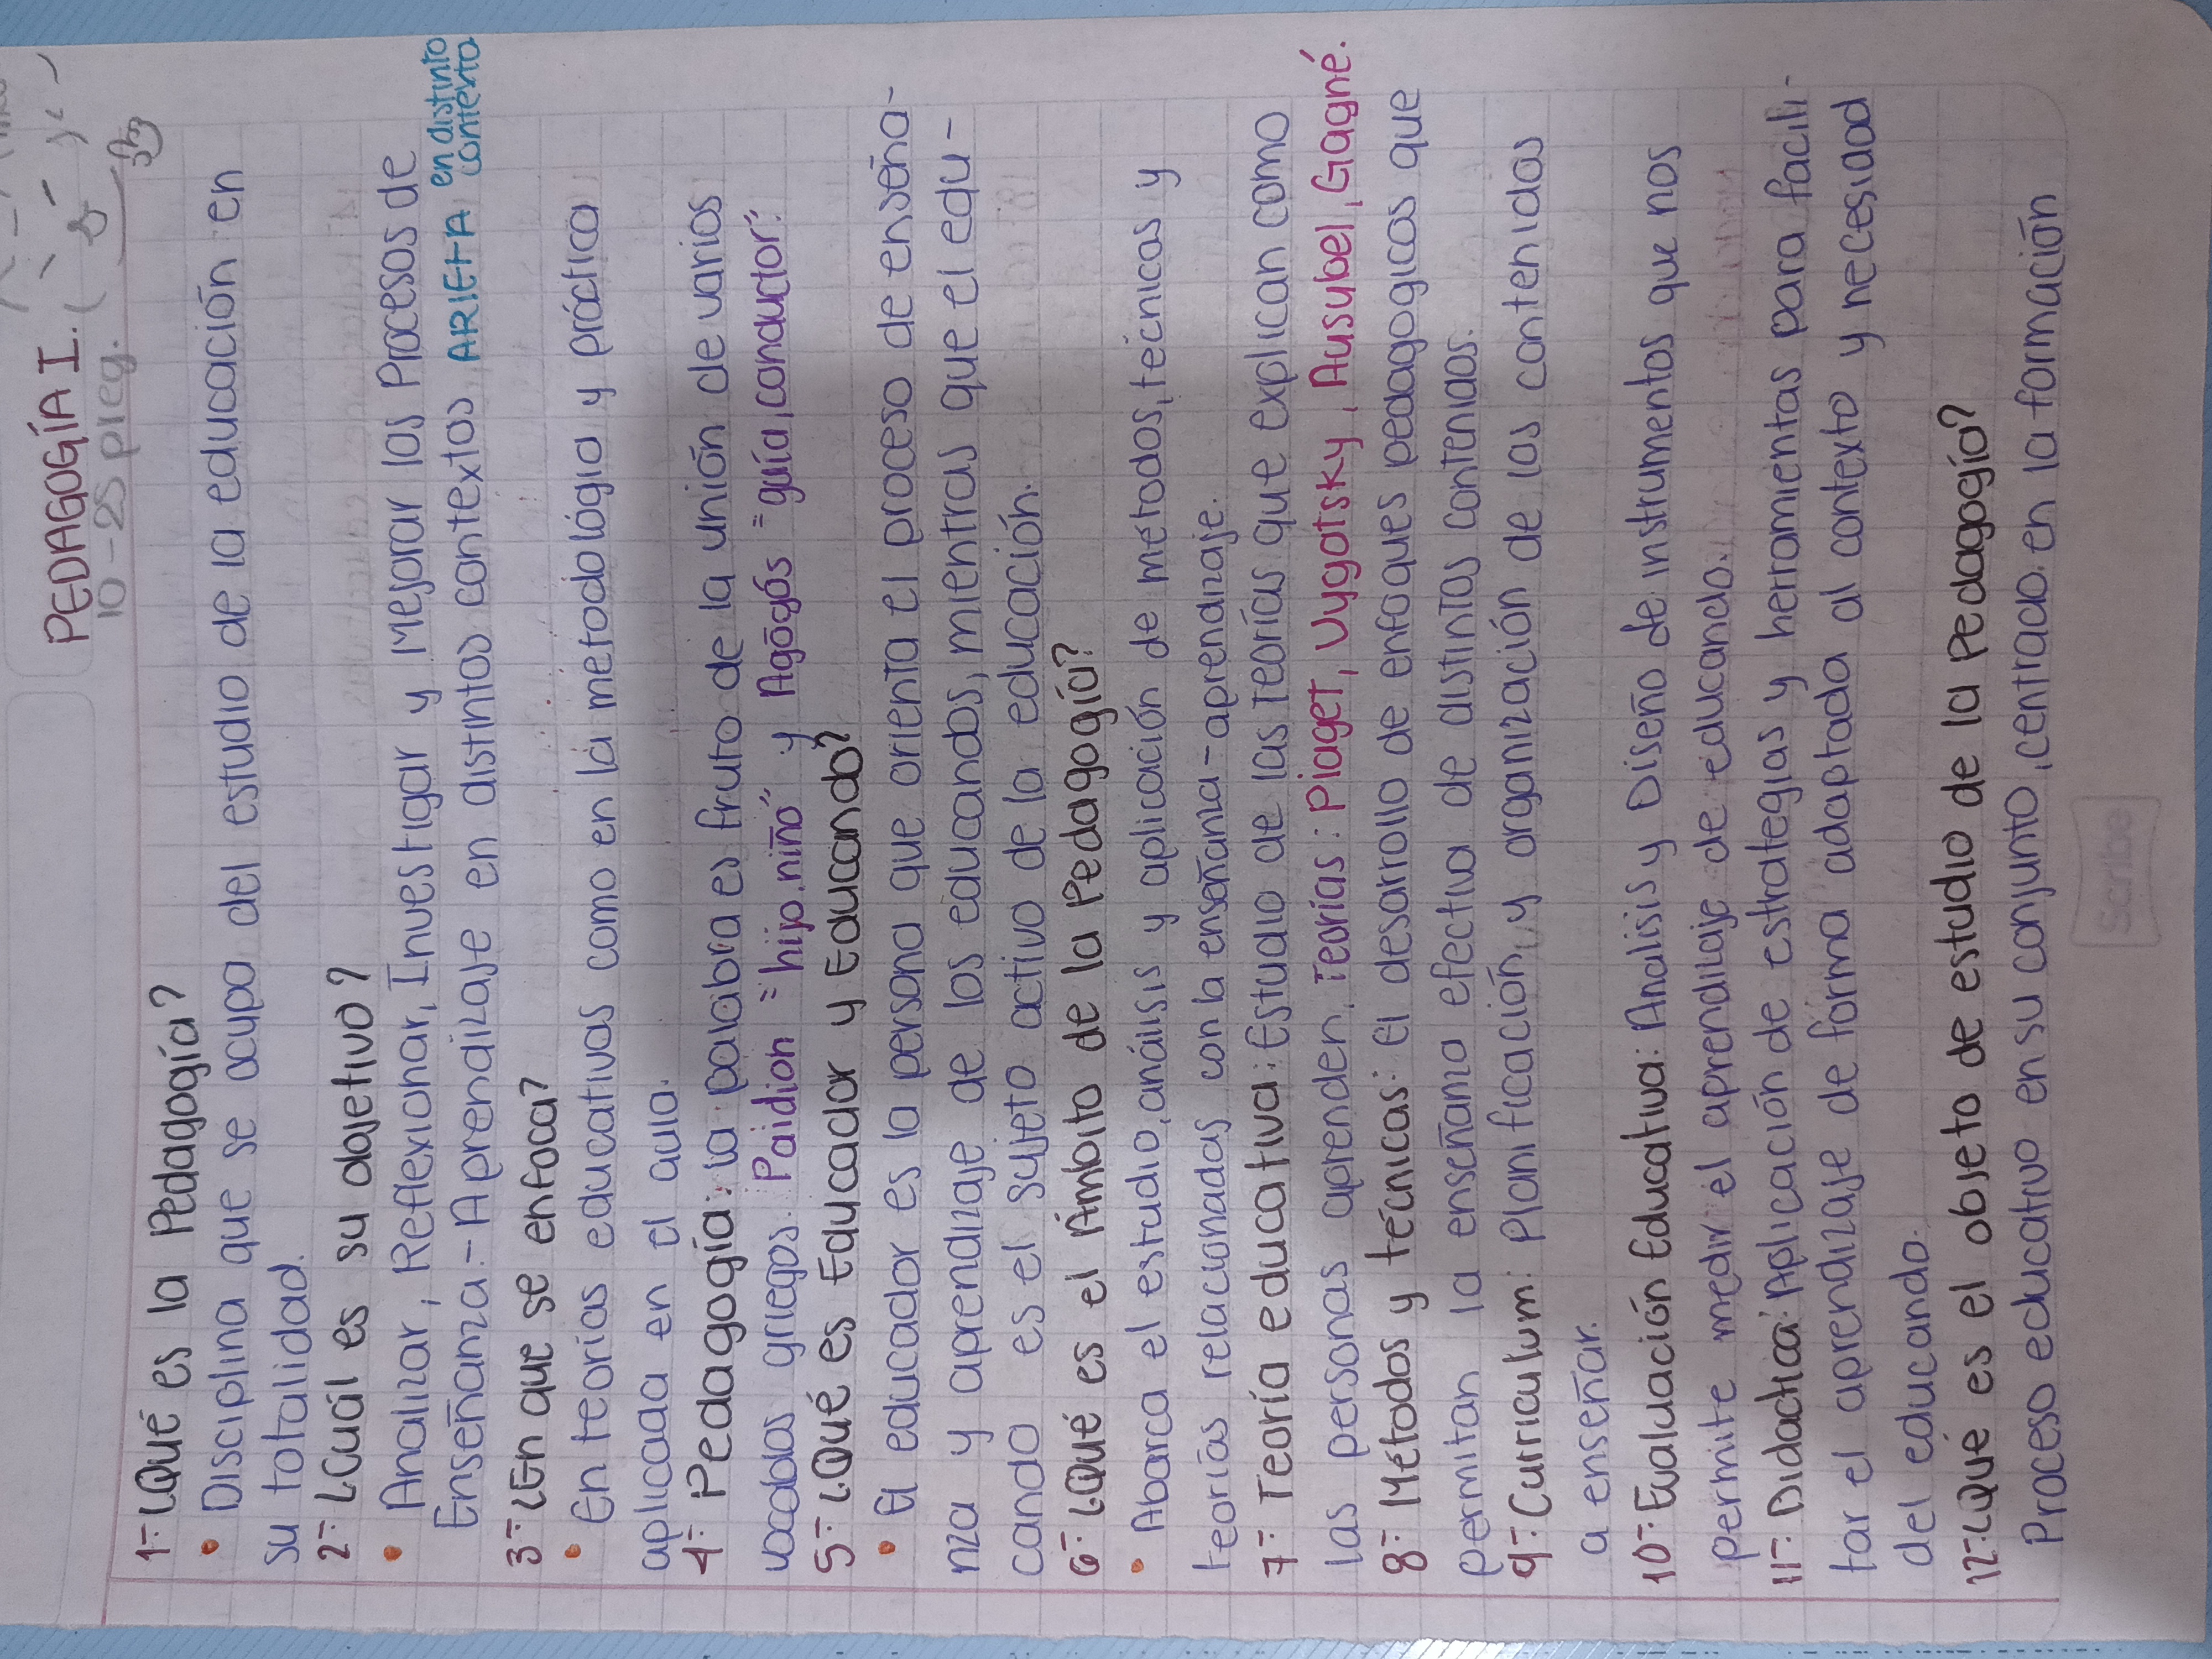 PEDAGOGÍA I.
10-25 preg.
1- ¿Qué es la Pedagogía?
• Disciplina que se ocupa del estudio de la educación en
su totalidad.
2- ¿Cuál es su objetivo?
• Analizar, Reflexionar, Investigar y Mejorar los Procesos de
Enseñanza-Aprendizaje en distintos contextos ARIEFA en distinto contexto
3- ¿En que se enfoca?
• En teorías educativas como en la metodológia y práctica
aplicada en el aula.
4- Pedagogía: la palabra es fruto de la unión de varios
vocablos griegos. Paidion = "hijo, niño" y Agōgós = "guía, conductor".
5- ¿Qué es Educador y Educando?
• El educador es la persona que orienta el proceso de enseña-
nza y aprendizaje de los educandos, mientras que el edu-
cando es el sujeto activo de la educación.
6- ¿Qué es el Ámbito de la Pedagogía?
• Abarca el estudio, análisis y aplicación de métodos, técnicas y
teorías relacionadas con la enseñanza-aprendizaje.
7- Teoría educativa: Estudio de las Teorías que explican como
las personas aprenden, Teorías: Piaget, Vygotsky, Ausubel, Gagné.
8- Métodos y técnicas: El desarrollo de enfoques pedagogicos que
permitan la enseñanza efectiva de distintos contenidos.
9- Curriculum: Planificación y organización de los contenidos
a enseñar.
10- Evaluación Educativa: Analisis y Diseño de instrumentos que nos
permite medir el aprendizaje de educando.
11- Didactica: Aplicación de estrategias y herramientas para facili-
tar el aprendizaje de forma adaptada al contexto y necesidad
del educando.
12- ¿Qué es el objeto de estudio de la Pedagogía?
Proceso educativo en su conjunto, centrado en la formación
Scribe